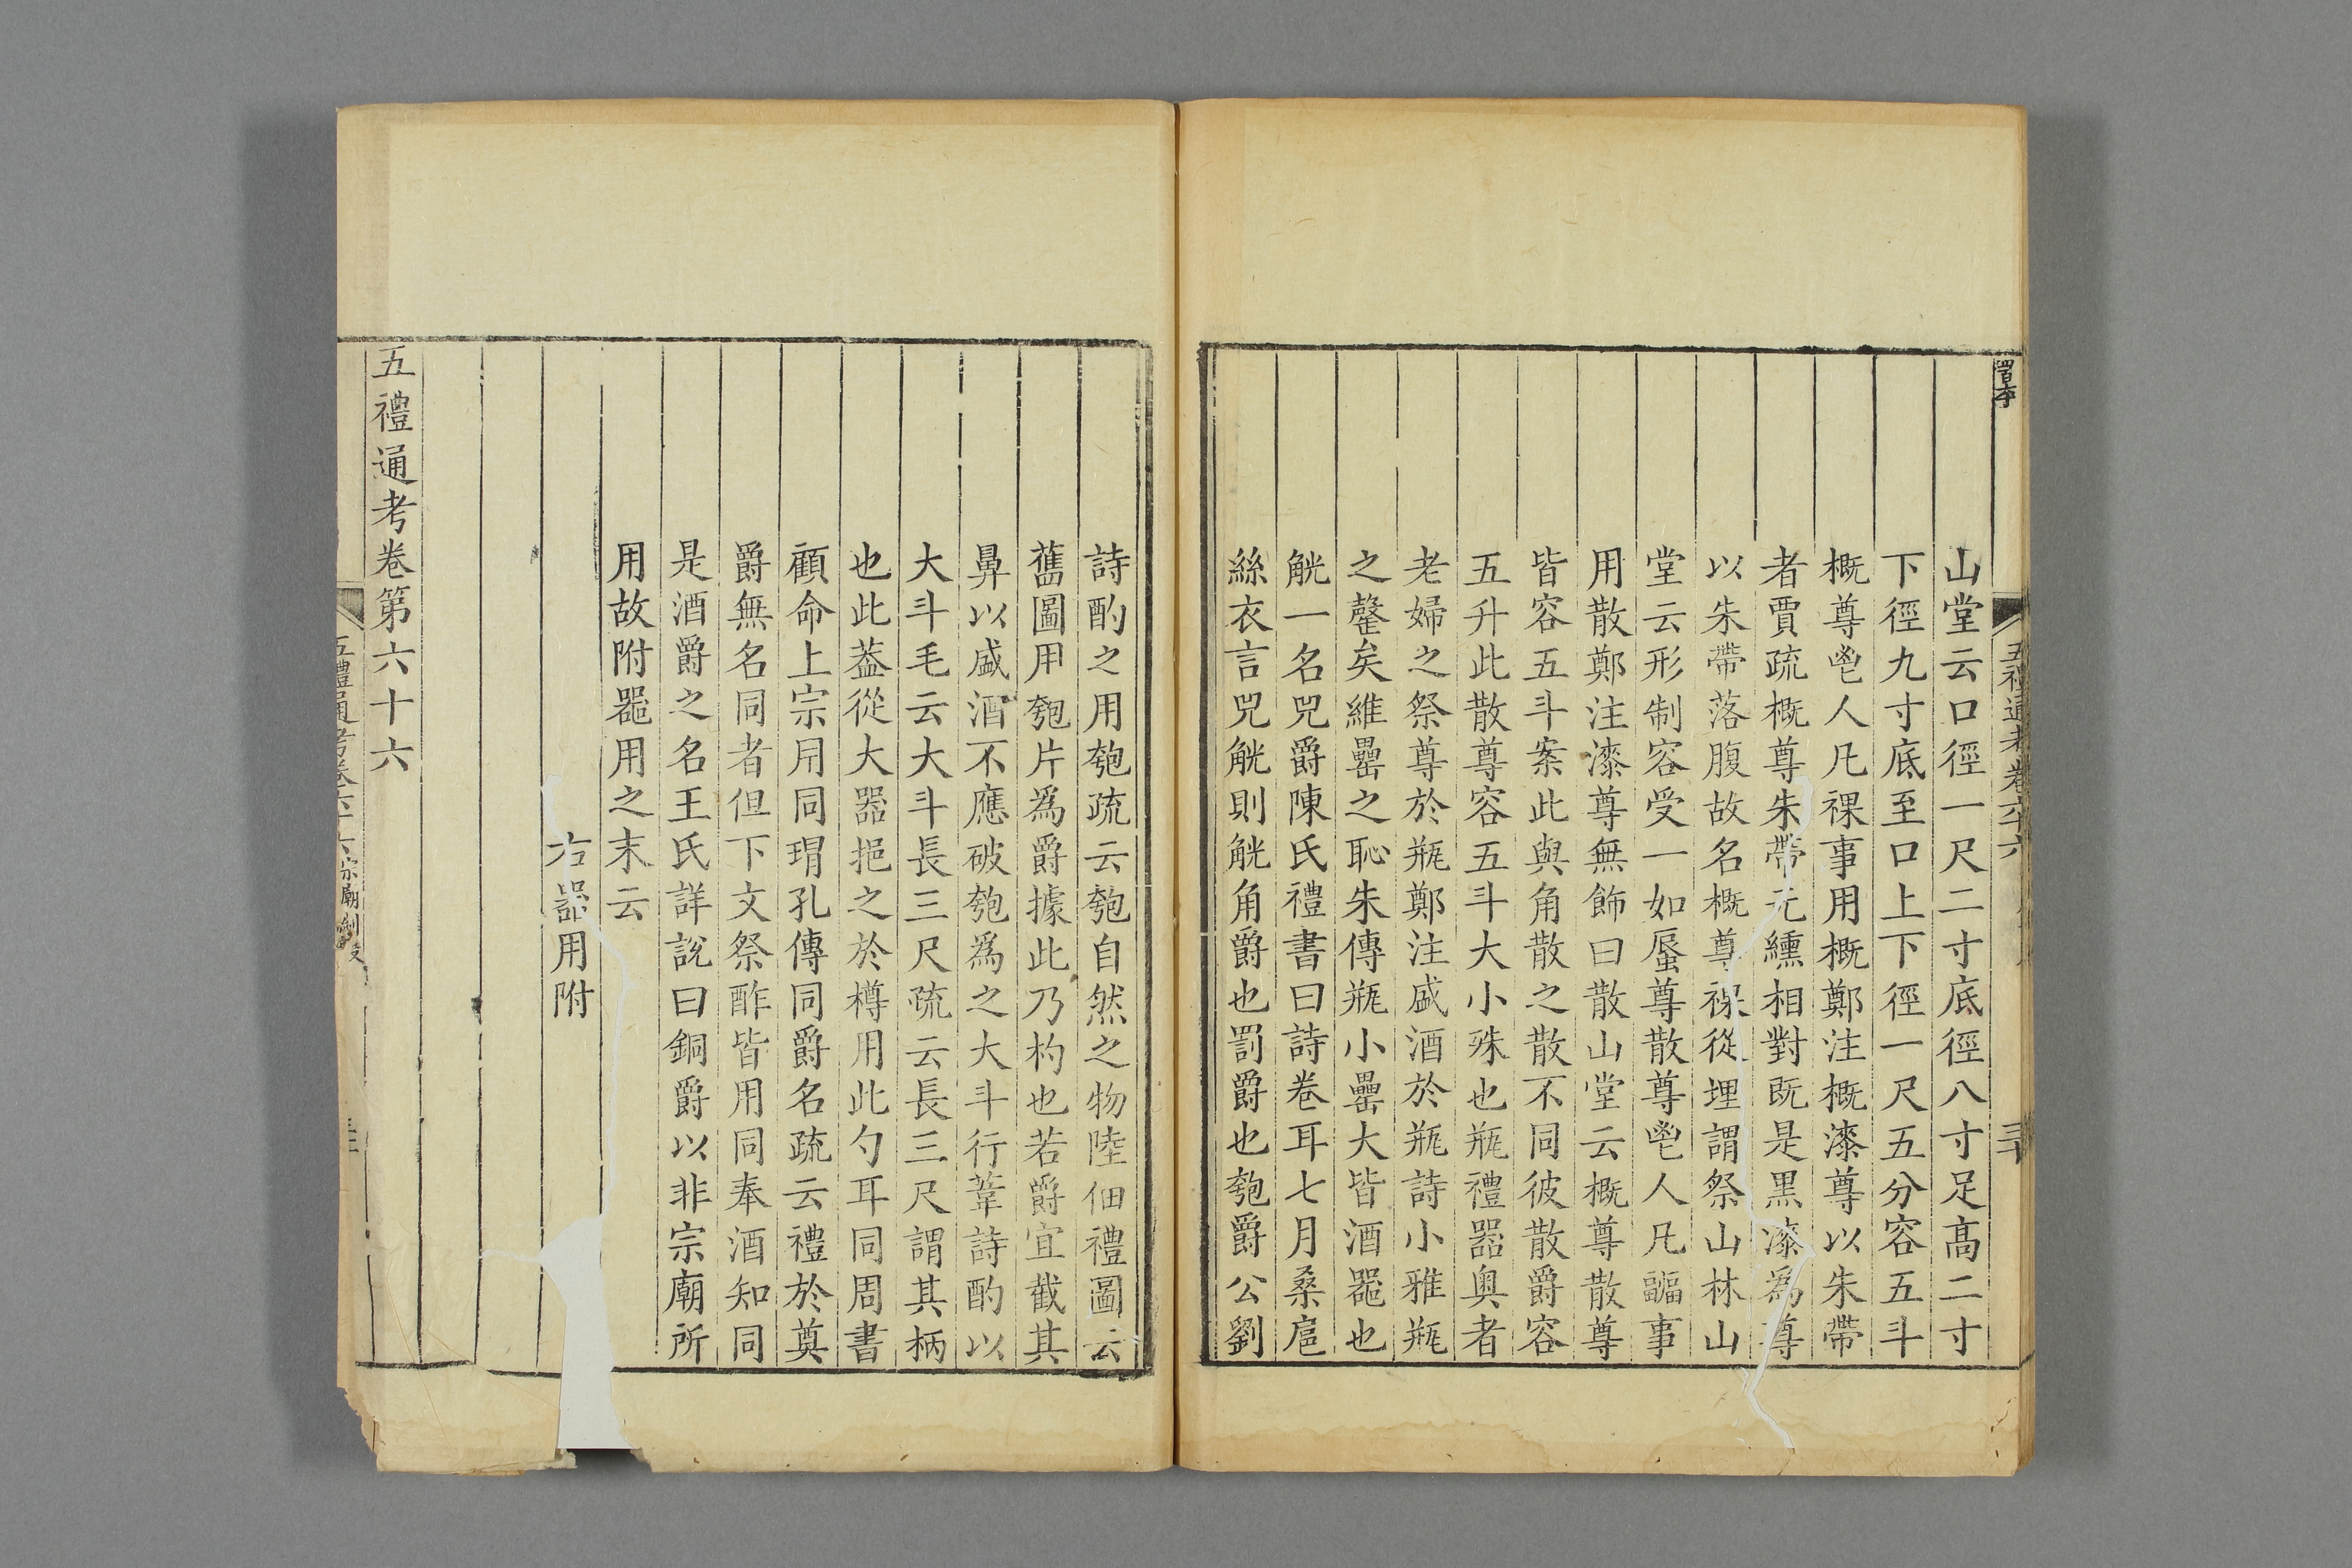 山堂云口徑一尺二寸底徑八寸足高二寸
下徑九寸底至口上下徑一尺五分容五斗
概尊鬯人凡祼事用概鄭注概漆尊以朱帶
者賈疏概尊朱帶元纁相對既是黑漆為尊
以朱帶落腹故名概尊祼從埋謂祭山林山
堂云形制容受一如蜃尊散尊鬯人凡疈事
用散鄭注漆尊無飾曰散山堂云概尊散尊
皆容五斗案此與角散之散不同彼散爵容
五升此散尊容五斗大小殊也瓶禮器奥者
老婦之祭尊於瓶鄭注盛酒於瓶詩小雅瓶
之罄矣維罍之恥朱傳瓶小罍大皆酒器也
觥一名兕爵陳氏禮書曰詩卷耳七月桑扈
絲衣言兕觥則觥角爵也罰爵也匏爵公劉
詩酌之用匏疏云匏自然之物陸佃禮圖云
舊圖用匏片為爵據此乃杓也若爵宜截其
鼻以盛酒不應破匏為之大斗行葦詩酌以
大斗毛云大斗長三尺疏云長三尺謂其柄
也此葢從大器挹之於樽用此勺耳同周書
顧命上宗用同瑁孔傳同爵名疏云禮於奠
爵無名同者但下文祭酢皆用同奉酒知同
是酒爵之名王氏詳說曰銅爵以非宗廟所
用故附器用之末云
右器用附
五禮通考卷第六十六
五禮通考卷六十六宗廟制度